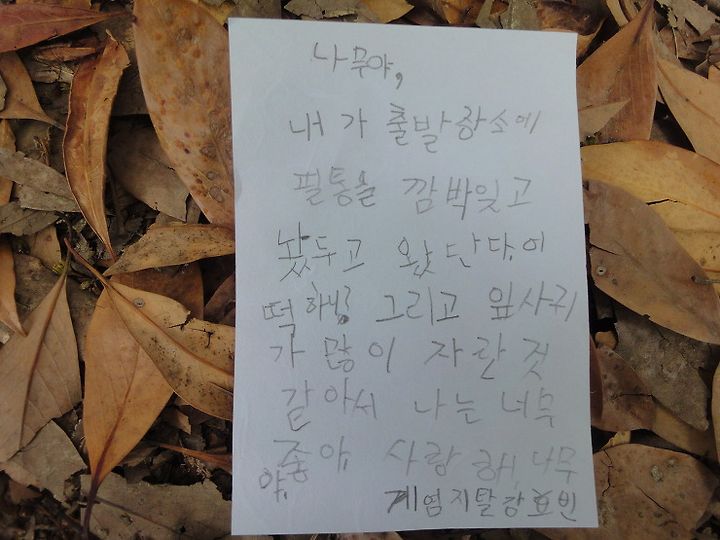 나무야,
내가 출발장소에
필통을 깜박잊고
놨두고 왔단다. 어
떡하징? 그리고 잎사귀
가 많이 자란 것
같아서 나는 너무
좋아. 사랑해, 나무
야.
계염지탈강효빈